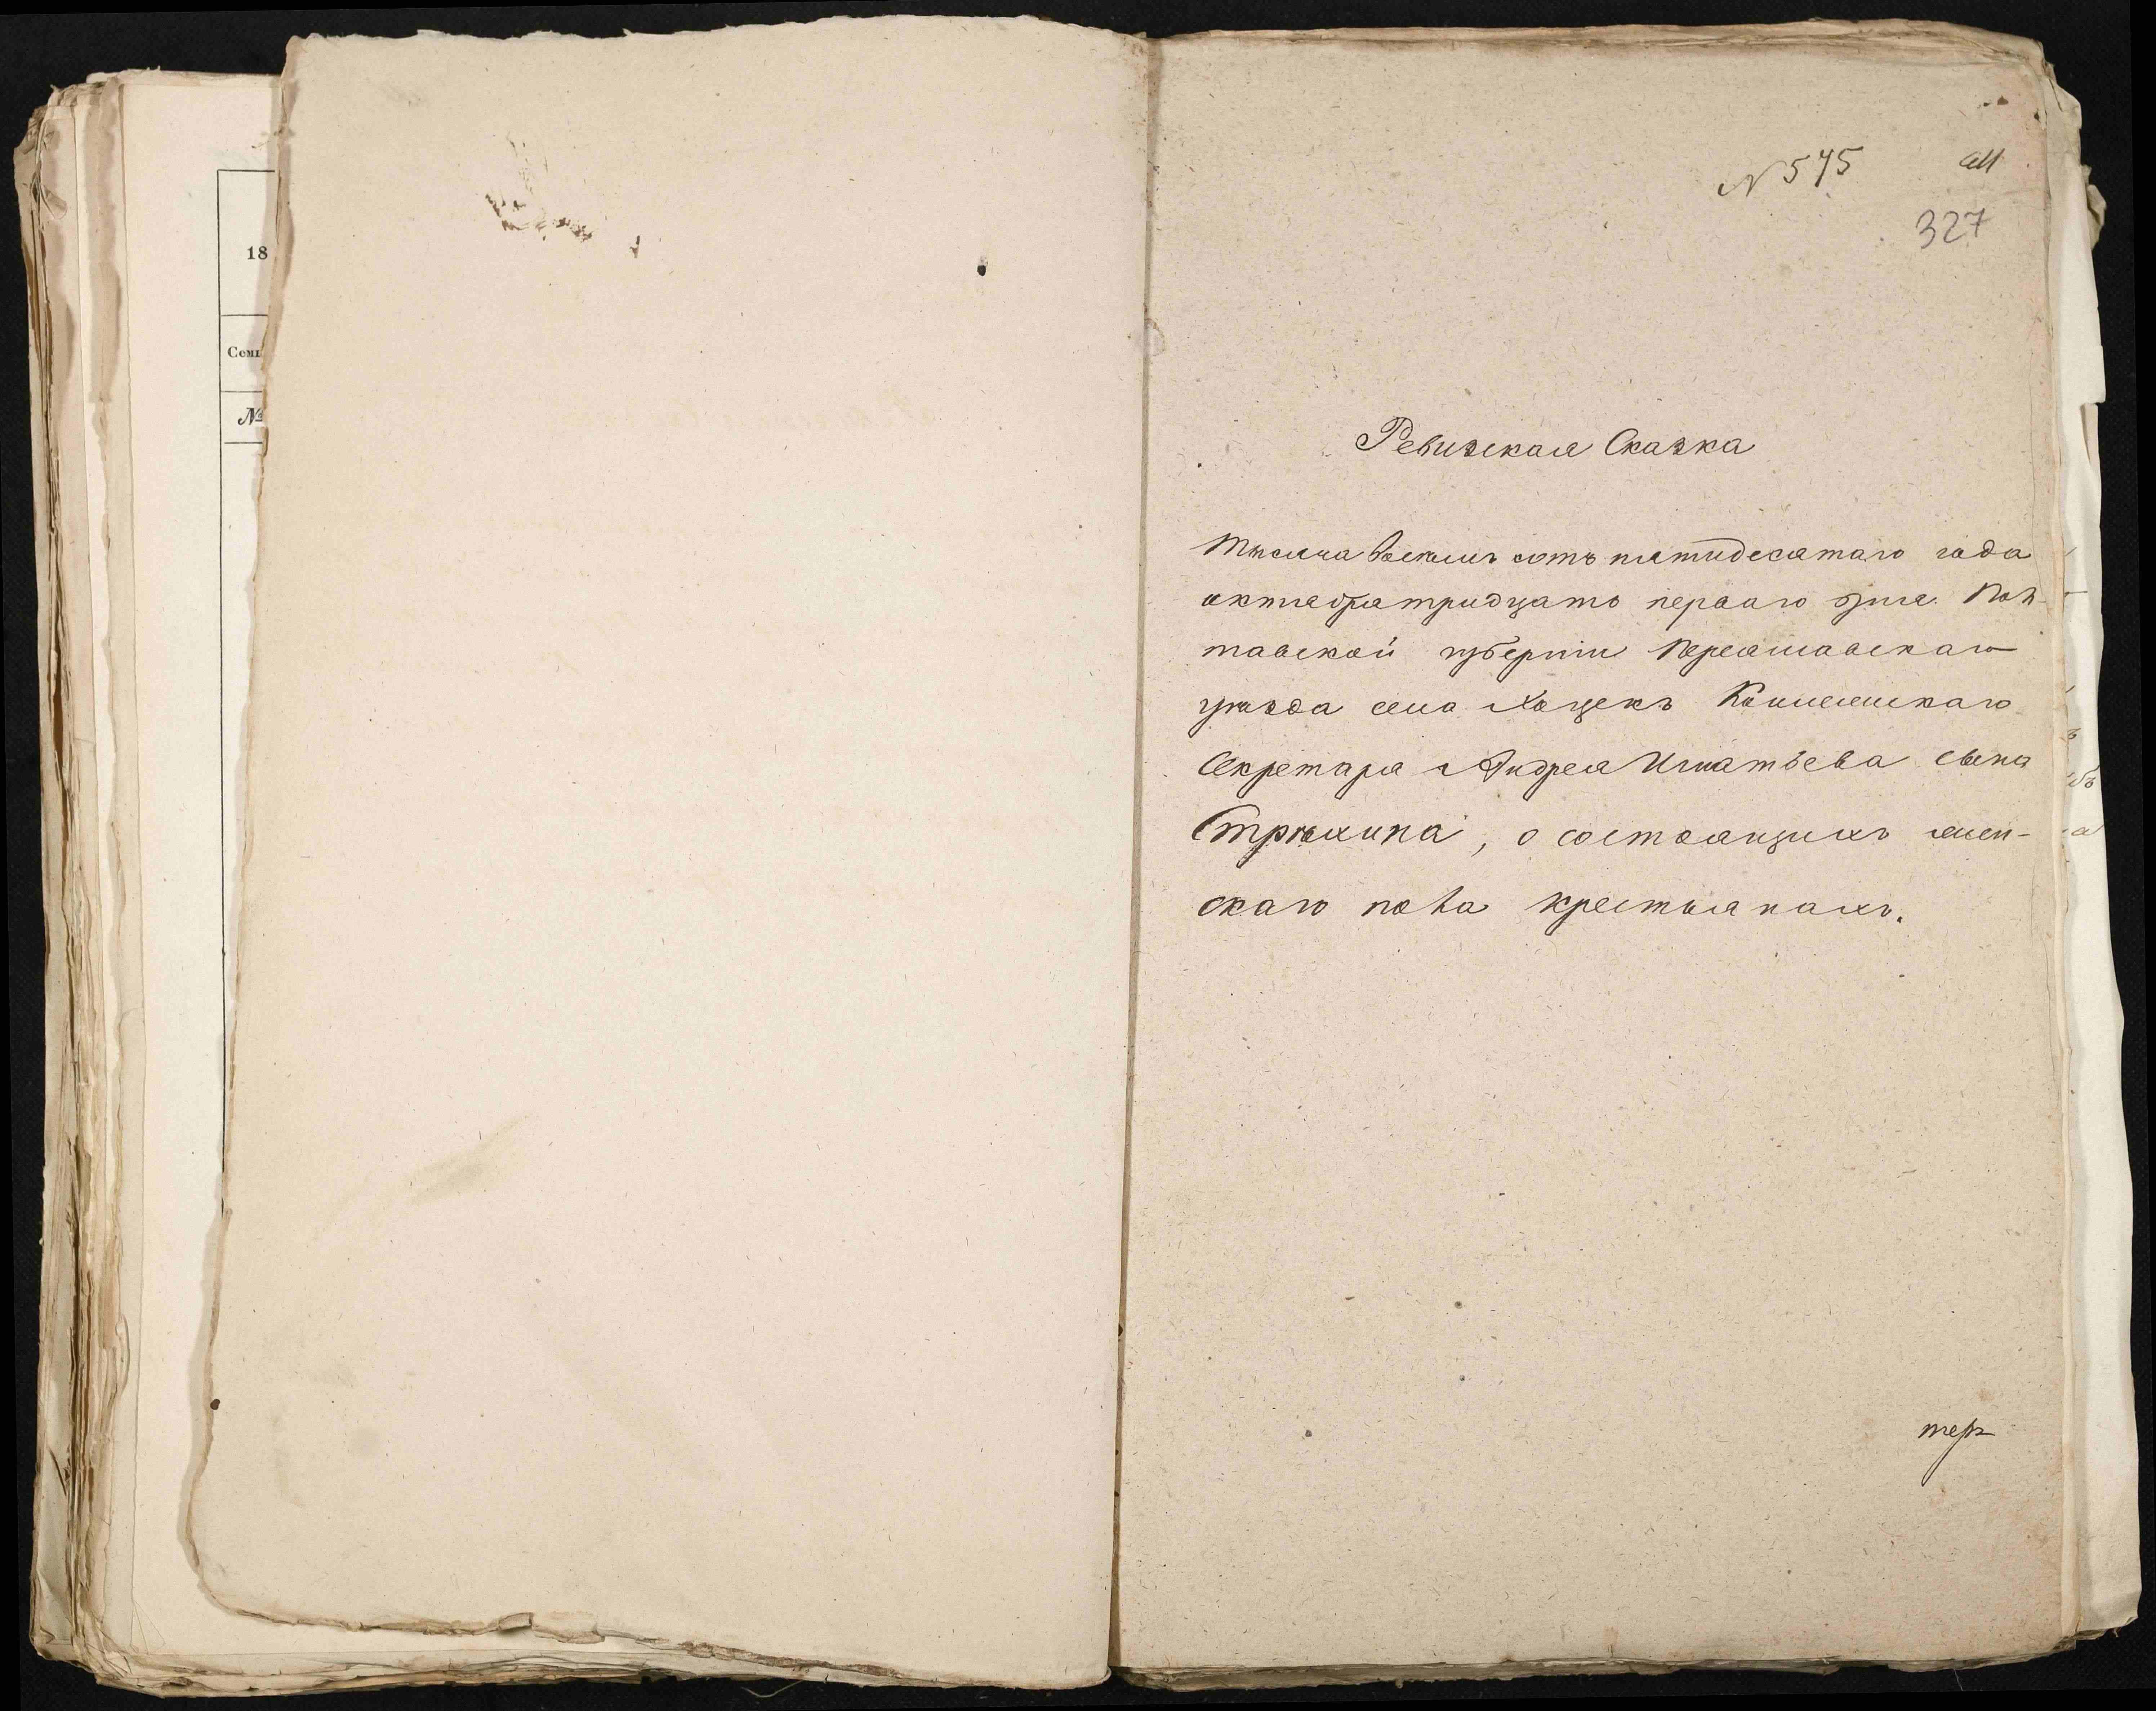 18
№
N 575
327
Ревизская Сказка
Тысяча восемь сотъ пятидесятаго года
октября тридцать перваго дня. Пол-
тавской губерніи Переяславскаго
уѣзда села Хоцекъ Коллежскаго
Секретаря Андрея Игнатьева сына
Стрѣхина, о состоящихъ жен-
скаго пола крестьянахъ.